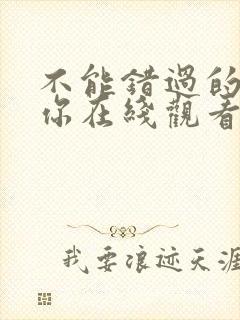 不能错過的
你在綫觀看
我要浪迹天涯